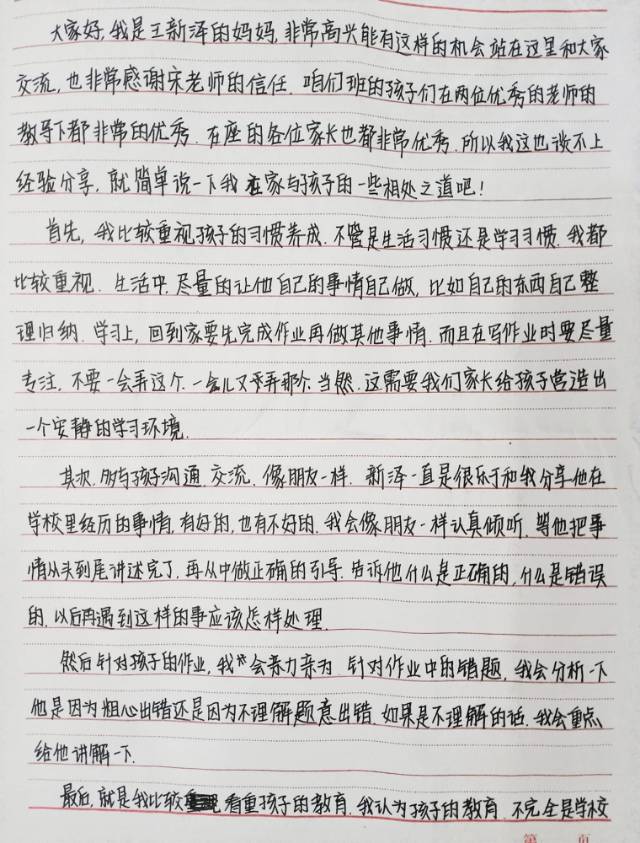 大家好,我是王新泽的妈妈,非常高兴能有这样的机会站在这里和大家
交流,也非常感谢宋老师的信任.咱们班的孩子们在两位优秀的老师的
教导下都非常的优秀.在座的各位家长也都非常优秀.所以我这也谈不上
经验分享,就简单说一下我在家与孩子的一些相处之道吧!
首先,我比较重视孩子的习惯养成.不管是生活习惯还是学习习惯.我都
比较重视.生活中.尽量的让他自己的事情自己做,比如自己的东西自己整
理归纳.学习上,回到家要先完成作业再做其他事情.而且在写作业时要尽量
专注,不要一会弄这个.一会儿又弄那个.当然.这需要我们家长给孩子营造出
一个安静的学习环境.
其次,多与孩子沟通.交流.像朋友一样.新泽一直是很乐于和我分享他在
学校里经历的事情,有好的,也有不好的.我会像朋友一样认真倾听.等他把事
情从头到尾讲述完了.再从中做正确的引导.告诉他什么是正确的,什么是错误
的.以后再遇到这样的事应该怎样处理.
然后针对孩子的作业,我会亲力亲为.针对作业中的错题,我会分析一下
他是因为粗心出错还是因为不理解题意出错.如果是不理解的话.我会重点
给他讲解一下.
最后,就是我比较看重孩子的教育.我认为孩子的教育.不完全是学校
第 页